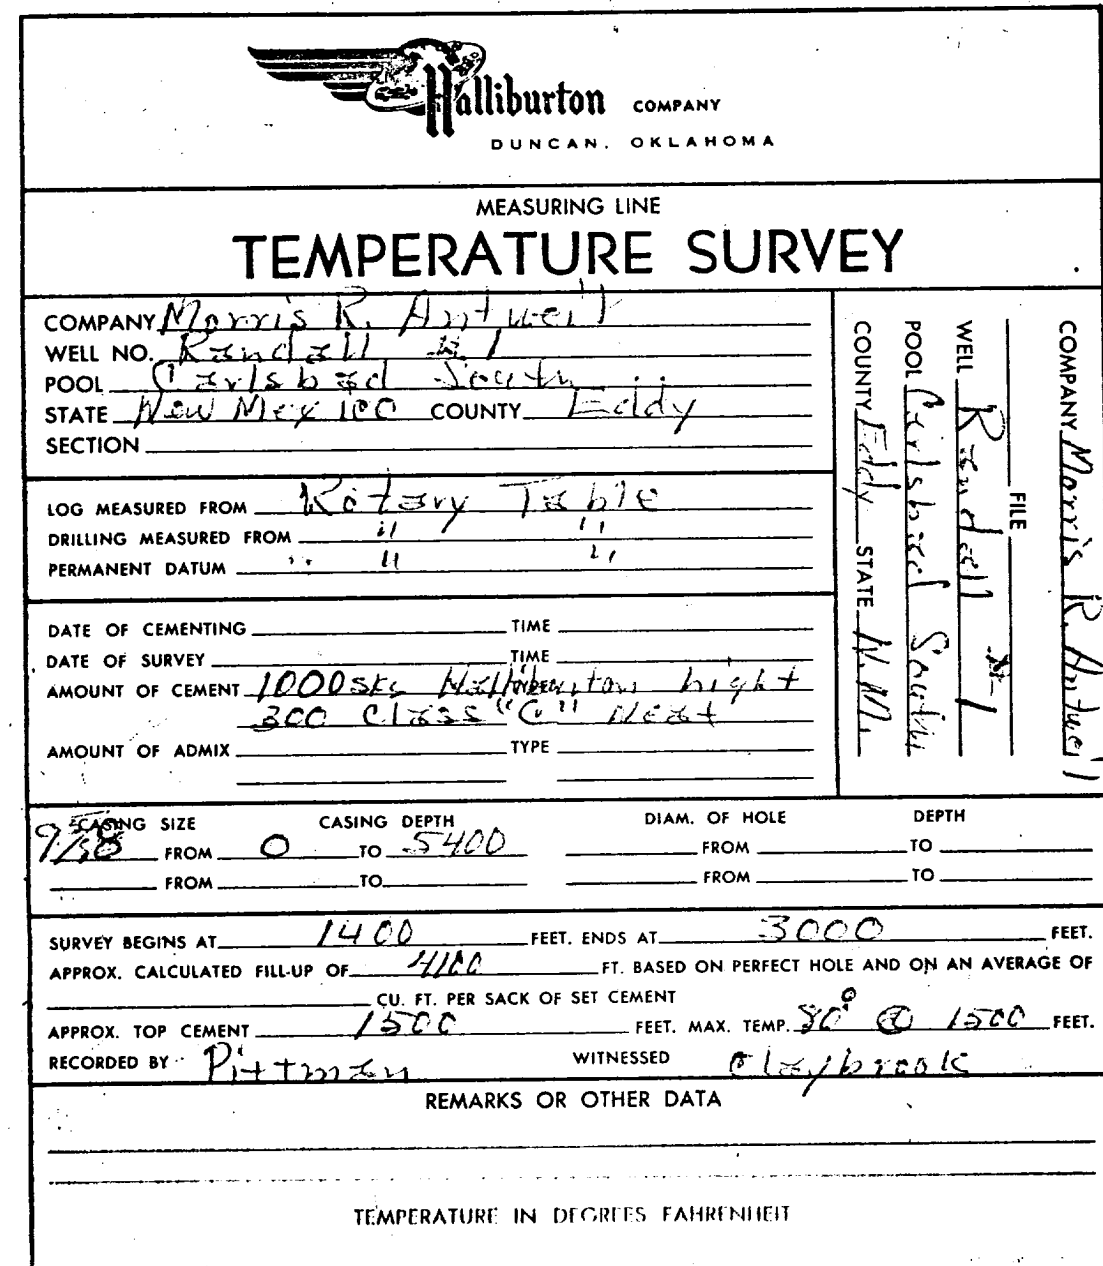 Halliburton COMPANY
DUNCAN, OKLAHOMA
MEASURING LINE
TEMPERATURE SURVEY
COMPANY Morris R. Antweil
WELL NO. Randall # 1
POOL Carlsbad South
STATE New Mexico COUNTY Eddy
SECTION
LOG MEASURED FROM Rotary Table
DRILLING MEASURED FROM " "
PERMANENT DATUM " "
DATE OF CEMENTING TIME
DATE OF SURVEY TIME
AMOUNT OF CEMENT 1000 sks Halliburton Light
300 Class "C" Neat
AMOUNT OF ADMIX TYPE
COMPANY Morris R. Antweil
FILE
WELL Randall # 1
POOL Carlsbad South
COUNTY Eddy STATE N.M.
CASING SIZE CASING DEPTH DIAM. OF HOLE DEPTH
9 5/8 FROM 0 TO 5400 FROM TO
FROM TO FROM TO
SURVEY BEGINS AT 1400 FEET. ENDS AT 3000 FEET.
APPROX. CALCULATED FILL-UP OF 4100 FT. BASED ON PERFECT HOLE AND ON AN AVERAGE OF
CU. FT. PER SACK OF SET CEMENT
APPROX. TOP CEMENT 1500 FEET. MAX. TEMP. 80° @ 1500 FEET.
RECORDED BY Pittman WITNESSED Claybrook
REMARKS OR OTHER DATA
TEMPERATURE IN DEGREES FAHRENHEIT